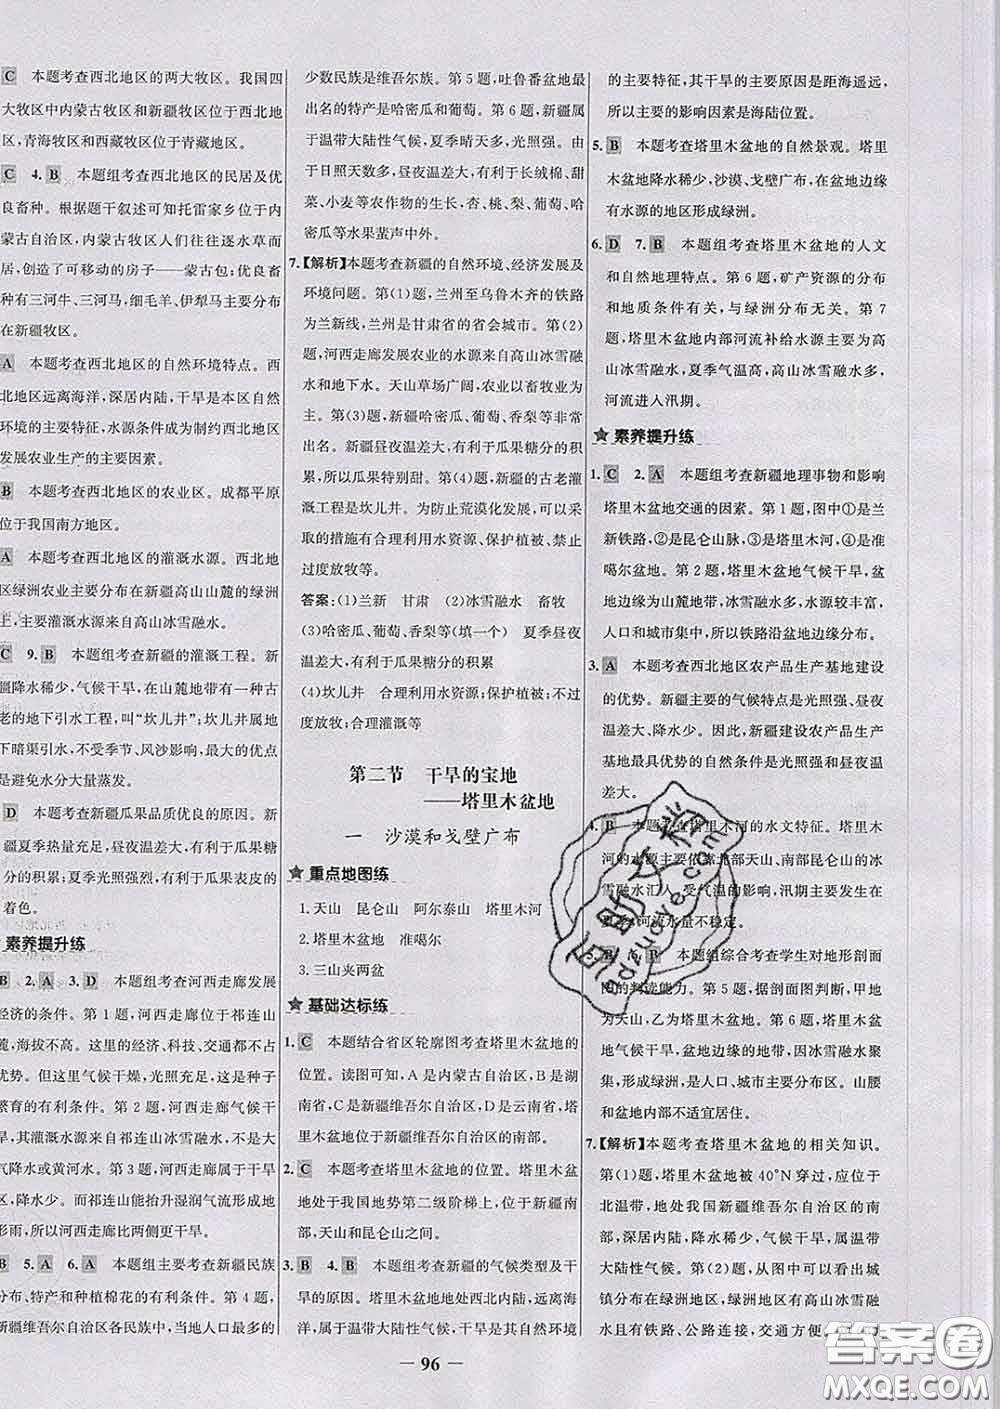 C 本题考查西北地区的两大牧区。我国四
大牧区中内蒙古牧区和新疆牧区位于西北地
区,青海牧区和西藏牧区位于青藏地区。
C 4. B 本题组考查西北地区的民居及优
良畜种。根据题干叙述可知托雷家乡位于内
蒙古自治区,内蒙古地区人们往往逐水草而
居,创造了可移动的房子——蒙古包;优良畜
种有三河牛、三河马,细毛羊、伊犁马主要分布
在新疆牧区。
A 本题考查西北地区的自然环境特点。西
北地区远离海洋,深居内陆,干旱是本区自然
环境的主要特征,水源条件成为制约西北地区
发展农业生产的主要因素。
B 本题考查西北地区的农业区。成都平原
位于我国南方地区。
A 本题考查西北地区的灌溉水源。西北地
区绿洲农业主要分布在新疆高山山麓的绿洲
上,主要灌溉水源来自高山冰雪融水。
C 9. B 本题组考查新疆的灌溉工程。新
疆降水稀少,气候干旱,在山麓地带有一种古
老的地下引水工程,叫“坎儿井”;坎儿井属地
下暗渠引水,不受季节、风沙影响,最大的优点
是避免水分大量蒸发。
D 本题考查新疆瓜果品质优良的原因。新
疆夏季热量充足,昼夜温差大,有利于瓜果糖
分的积累;光照强烈,有利于瓜果表皮的
着色。
素养提升练
B 2. A 3. D 本题组考查河西走廊发展
经济的条件。第1题,河西走廊位于祁连山
北麓,海拔不高。这里的经济、科技、交通都不占
优势。但这里气候干燥,光照充足,是发展种子
繁育的有利条件。第2题,河西走廊气候干
旱,其灌溉水源来自祁连山冰雪融水,而不是大
气降水或黄河水。第3题,河西走廊属于干旱
区,降水少。而祁连山能抬升湿润气流形成地
形雨,所以河西走廊比两侧更干旱。
B 5. A 6. A 本题组主要考查新疆民族
分布、特产和种植棉花的有利条件。第4题,
新疆维吾尔自治区各民族中,当地人口最多的
少数民族是维吾尔族。第5题,吐鲁番盆地最
出名的特产是哈密瓜和葡萄。第6题,新疆
属于温带大陆性气候,夏季晴天多,光照强,
日照时间长,昼夜温差大,有利于长绒棉、甜
菜、小麦等农作物的生长,杏、桃、梨、葡萄等
水果蜚声中外。
7.【解析】本题考查新疆的自然环境、经济发展及
环境问题。第(1)题,兰州至乌鲁木齐的铁路
为兰新线,兰州是甘肃省的省会城市。第(2)
题,河西走廊发展农业的水源来自高山冰雪融
水和地下水。天山草场广阔,农业以畜牧业为
主。第(3)题,新疆哈密瓜、葡萄、香梨等非常
出名。新疆昼夜温差大,有利于瓜果糖分的积
累,所以瓜果特别甜。第(4)题,新疆的古老灌
溉工程是坎儿井。为防止荒漠化发展,可以采
取的措施有合理利用水资源、保护植被、禁止
过度放牧等。
答案:(1)兰新 甘肃 (2)冰雪融水 畜牧
(3)哈密瓜、葡萄、香梨等(填一个) 夏季昼夜
温差大,有利于瓜果糖分的积累
(4)坎儿井 合理利用水资源;保护植被;不过
度放牧;合理灌溉等
第二节 干旱的宝地
——塔里木盆地
一 沙漠和戈壁广布
重点地图练
1.天山 昆仑山 阿尔泰山 塔里木河
2.塔里木盆地 准噶尔
3.三山夹两盆
基础达标练
1. C 本题结合省区轮廓图考查塔里木盆地的
位置。读图可知,A是内蒙古自治区,B是湖
南省,C是新疆维吾尔自治区,D是云南省,塔
里木盆地位于新疆维吾尔自治区的南部。
2. C 本题考查塔里木盆地的位置。塔里木盆
地处于我国地势第二级阶梯上,位于新疆南
部,天山和昆仑山之间。
3. B 4. B 本题组考查新疆的气候类型及干
旱的原因。塔里木盆地地处西北内陆,远离海
洋,属于温带大陆性气候,干旱是其自然环境
的主要特征,其干旱的主要原因是距海遥远,
所以主要的影响因素是海陆位置。
5. B 本题考查塔里木盆地的自然景观。塔里
木盆地降水稀少,沙漠、戈壁广布,在盆地边缘
有水源的地区形成绿洲。
6. D 7. B 本题组考查塔里木盆地的人文
和自然地理特点。第6题,矿产资源的分布
和地质条件有关,与绿洲分布无关。第7
题,塔里木盆地内部河流补给水源主要为高
山冰雪融水,夏季气温高,高山冰雪融水多,
河流进入汛期。
素养提升练
1. C 2. A 本题组考查新疆地理事物和影响
塔里木盆地交通的因素。第1题,图中①是兰
新铁路,②是昆仑山脉,③是塔里木河,④是准
噶尔盆地。第2题,塔里木盆地气候干旱,盆
地边缘为山麓地带,冰雪融水多,水源较丰富,
人口和城市集中,所以铁路沿盆地边缘分布。
3. A 本题考查西北地区农产品生产基地建设
的优势。新疆主要的气候特点是光照强、昼夜
温差大、降水少。因此,新疆建设农产品生产
基地最具优势的自然条件是光照强、昼夜
温差大。
4. B 本题考查塔里木河的水文特征。塔里木
河的水源主要依靠北部天山、南部昆仑山的冰
雪融水汇入。受气温的影响,汛期主要发生在
夏季,河流水量不稳定。
本题组综合考查学生对地形剖面
图的判读能力。第5题,据剖面图判断,甲地
为天山,乙为塔里木盆地。第6题,塔里木盆
地气候干旱,盆地边缘的地带,因冰雪融水聚
集,形成绿洲,是人口、城市主要分布区。山腰
和盆地内部不适宜居住。
7.【解析】本题考查塔里木盆地的相关知识。
第(1)题,塔里木盆地被40°N穿过,应位于
北温带,属我国新疆维吾尔自治区的南
部,深居内陆,降水稀少,气候干旱,属温带
大陆性气候。第(2)题,从图中可以看出城
镇分布在绿洲地区,绿洲地区高山冰雪融
水且有铁路、公路连接,交通方便。
— 96 —
答案圈
MXQE.COM